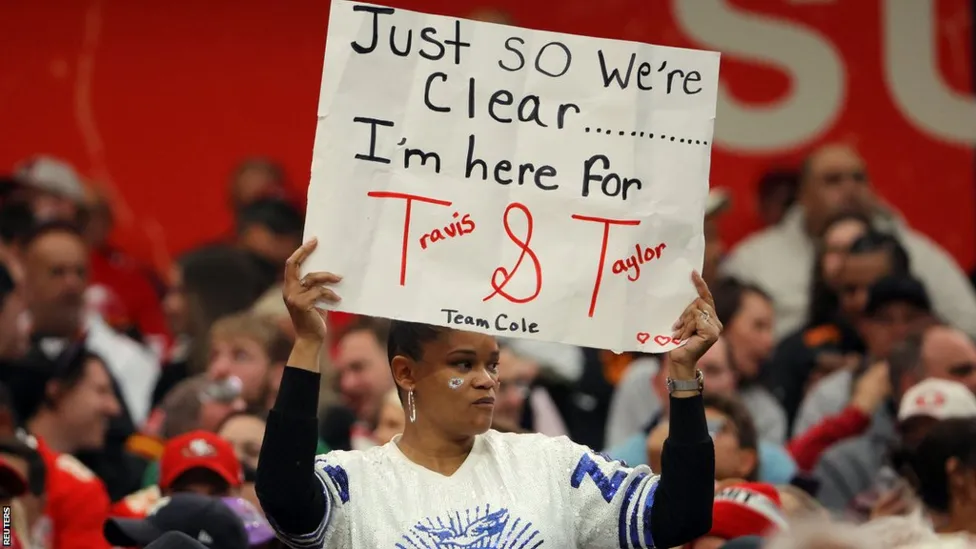 Just so We're
Clear...........
I'm here for
Travis & Taylor
Team Cole
REUTERS